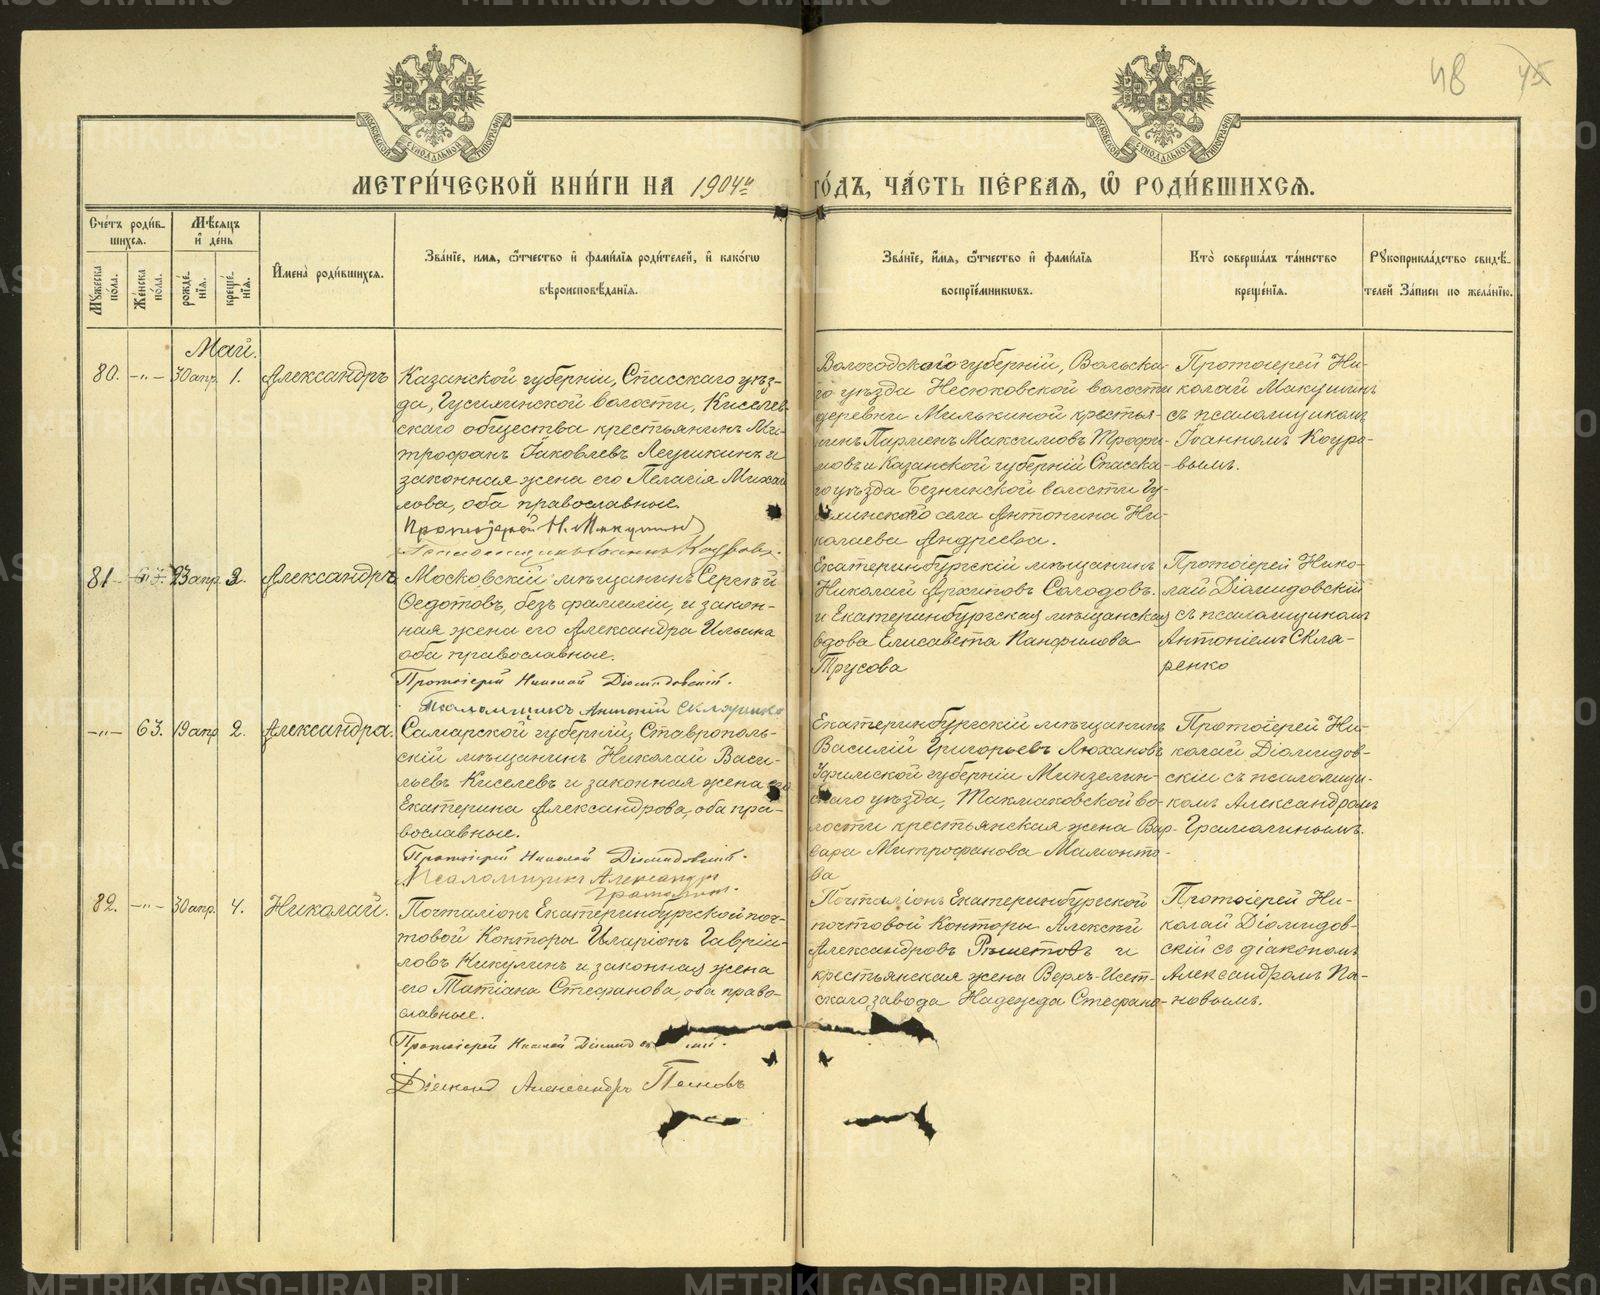 48 45
МОСКОВСКОЙ СѴНОДАЛЬНОЙ ТИПОГРАФІИ
МОСКОВСКОЙ СѴНОДАЛЬНОЙ ТИПОГРАФІИ
МЕТРИ́ЧЕСКОЙ КНИ́ГИ НА 1904й ГО́ДЪ, ЧА́СТЬ ПЕ́РВАЯ, Ѡ҆ РОДИ́ВШИХСЯ.
Сче́тъ роди́в-
шихся.
Мꙋ́жеска по́ла.
Же́нска по́ла.
Мѣ́сяцъ
и҆ де́нь
рожде́нїѧ.
креще́нїѧ.
И҆мена̀ роди́вшихся.
Зва́нїе, имя, ѻ҆́тчество и҆ фами́лїѧ роди́телей, и҆ како́гѡ
вѣроисповѣ́данїѧ.
Зва́нїе, и҆́мя, ѻ҆́тчество и҆ фами́лїѧ
воспрїе́мникѡвъ.
Кто̀ соверша́лъ та́инство
креще́нїѧ.
Рꙋкоприкла́дство свидѣ́-
телей За́писи по жела́нїю.
Май.
80. -"- 30 апр. 1. Александръ
Казанской губерніи, Спасскаго уѣз-
да, Гусихинской волости, Киселев-
скаго общества крестьянинъ Ми-
трофанъ Іаковлевъ Леушкинъ и
законная жена его Пелагія Михай
лова, оба православные.
Протоіерей Н. Макушинъ
Псаломщикъ Іоаннъ Коуровъ.
Вологодской губерніи, Вольска-
го уѣзда Несюковской волости
деревни Милькиной крестья-
нинъ Парменъ Максимовъ Трофи-
мовъ и Казанской губерніи Спасска-
го уѣзда Безнинской волости Гу-
синскаго села Антонина Ни-
колаева Андреева.
Протоіерей Ни-
колай Макушинъ
съ псаломщикомъ
Іоанномъ Коуро-
вымъ.
81 23 апр. 2. Александръ
Московскій мѣщанинъ Сергѣй
Ѳедотовъ, безъ фамиліи, и закон-
ная жена его Александра Ильина
оба православные.
Протоіерей Николай Діомидовскій.
Псаломщикъ Антоній Скляренко
Екатеринбургскій мѣщанинъ
Николай Архиповъ Солодовъ.
и Екатеринбургская мѣщанская
вдова Елисавета Панфилова
Трусова
Протоіерей Нико-
лай Діомидовскій
съ псаломщикомъ
Антоніемъ Скля-
ренко
-"- 63. 19 апр. 2. Александра.
Самарской губерніи, Ставрополь-
скій мѣщанинъ Николай Васи-
льевъ Киселевъ и законная жена его
Екатерина Александрова, оба пра-
вославные.
Протоіерей Николай Діомидовскій.
Псаломщикъ Александръ
Грамолинъ.
Екатеринбургскій мѣщанинъ
Василій Григорьевъ Люхановъ
Уфимской губерніи Мензелин-
скаго уѣзда, Такмаковской во-
лости крестьянская жена Вар-
вара Митрофанова Мамонто-
ва
Протоіерей Ни-
колай Діомидов-
скій съ псаломщи-
комъ Александромъ
Грамолинымъ.
82. -"- 30 апр. 4. Николай.
Почталіонъ Екатеринбургской поч-
товой Конторы Иларіонъ Гавріи-
ловъ Никулинъ и законная жена
его Татіана Стефанова, оба право-
славные.
Протоіерей Николай
Діаконъ Александръ Пановъ
Почталіонъ Екатеринбургской
почтовой Конторы Алексѣй
Александровъ Рѣшетовъ и
крестьянская жена Верхъ-Исет-
скаго завода Надежда Стефано-
Протоіерей Ни-
колай Діомидов-
скій съ діакономъ
Александромъ Па-
новымъ.
METRIKI.GASO-URAL.RU